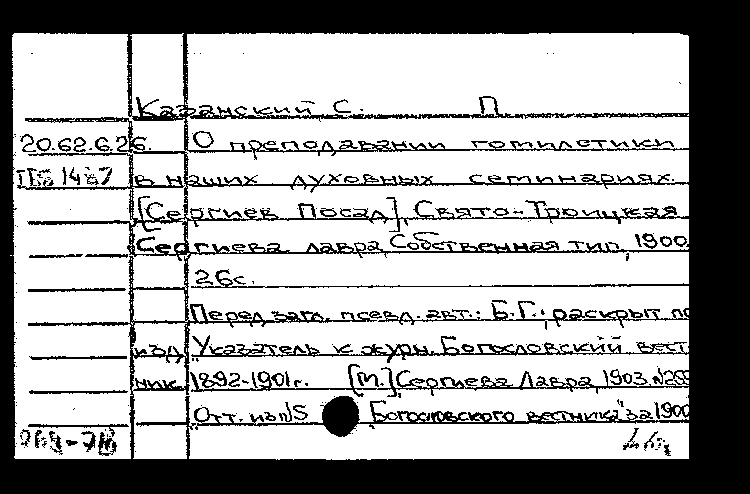 Казанский С. П
20.62.6.26. О преподавании гомилетики
в наших духовных семинариях.
[Сергиев Посад], Свято-Троицкая
Сергиева лавра, Собственная тип, 1900
26с.
Перед загл. псевд. авт.: Б.Г.; раскрыт по
изд „Указатель к журн. Богословский вест-
ник 1892-1901г. [М.] Сергиева Лавра, 1903.
„Отт. из №5 Богословского вестника" за 1900